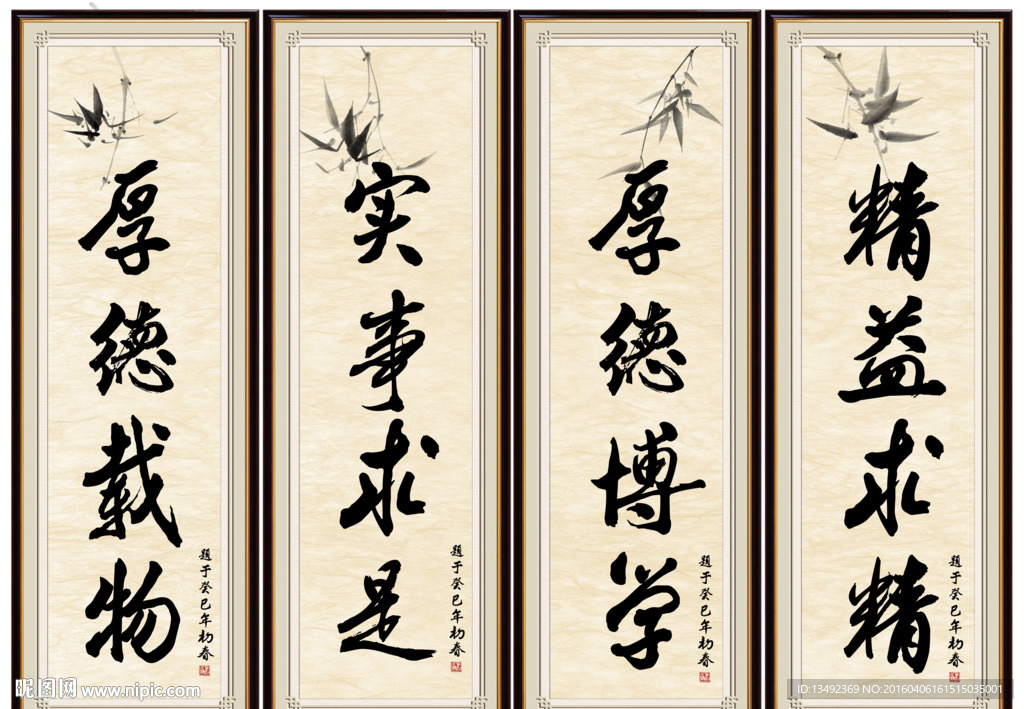 厚德载物
题于癸巳年初春
实事求是
题于癸巳年初春
厚德博学
题于癸巳年初春
精益求精
题于癸巳年初春
昵图网 www.nipic.com
ID:13492369 NO:20160406161515035001